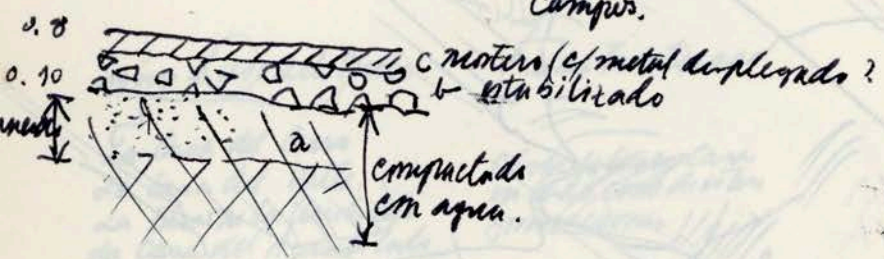 Campus.
0.8
c mortero (c/metal desplegado?
0.10
b estabilizado
a
compactado
con agua.